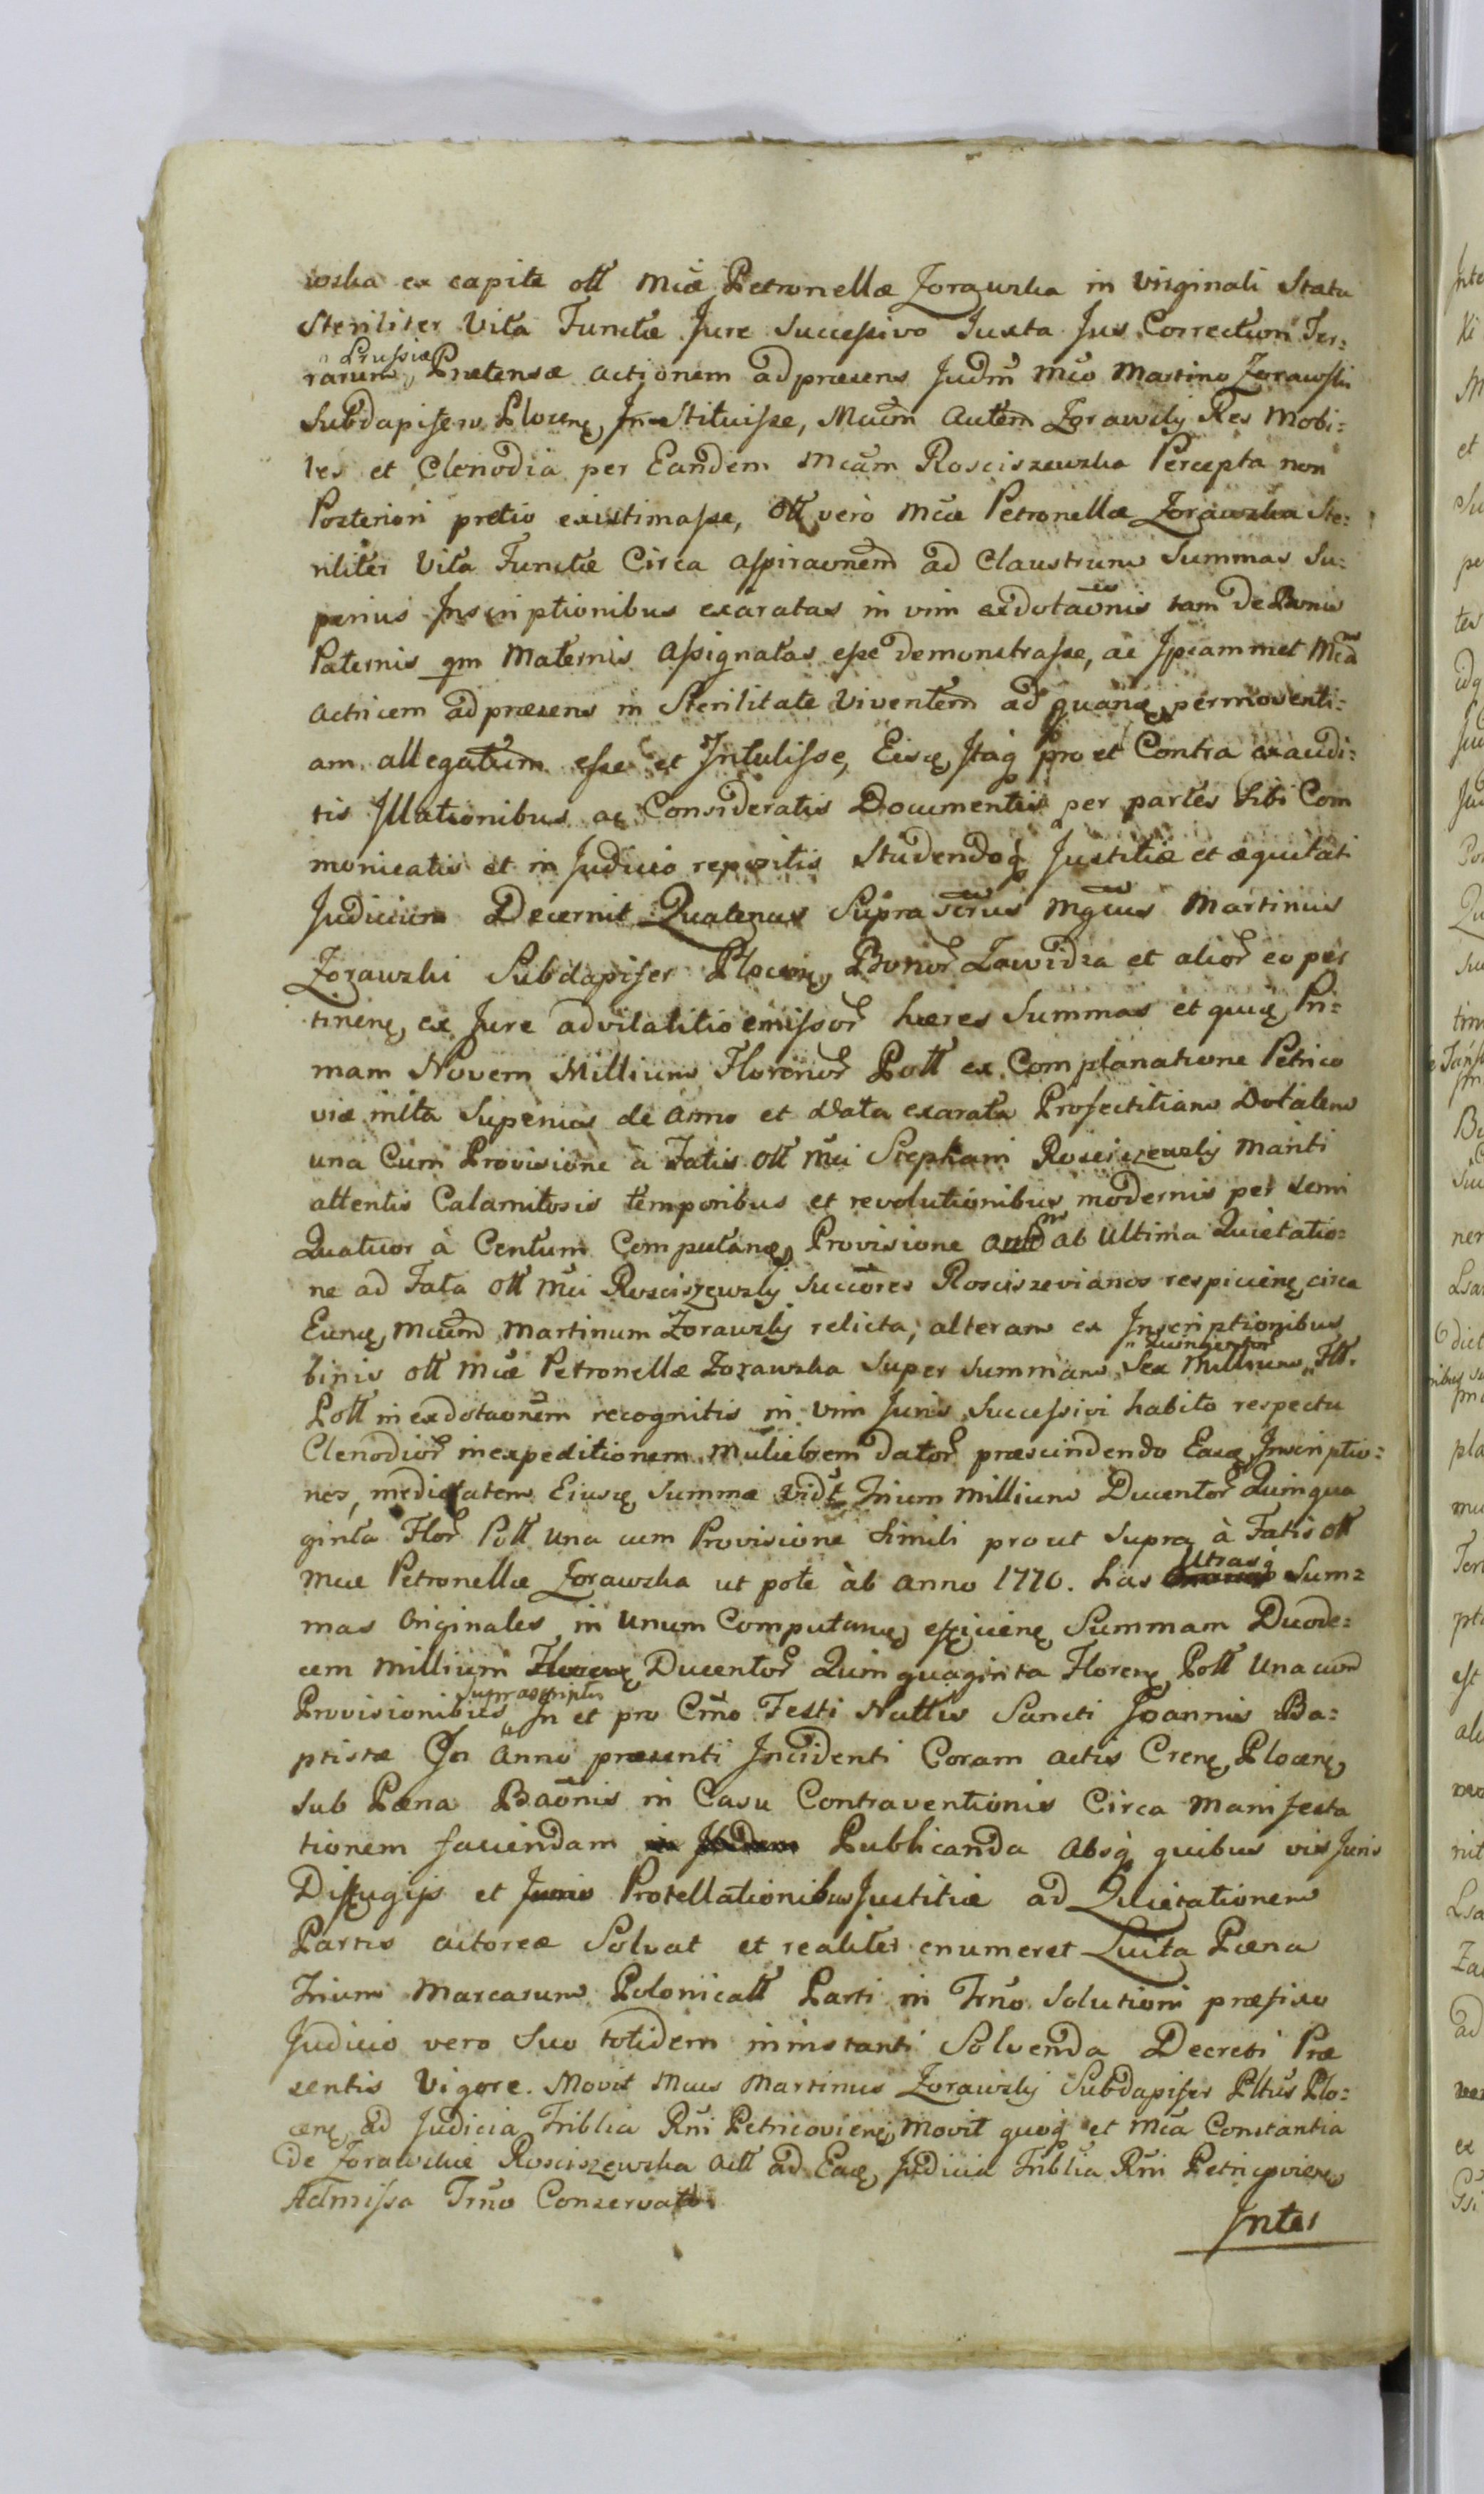 wska ex capite oll Mcæ Petronellæ Zorawska in virginali Statu
Steriliter Vita Functæ Jure Successivo Juxta Jus Correctum Ter:
rarum Prussiæ Prætensæ actionem ad præsens Judm Mco Martino Zorawski
Subdapifero Plocen, Instituisse, Mcum autem Zorawsky Res Mobi:
les et Clenodia per Eandem Mcam Rosciszewska Percepta non
Posteriori pretio existimasse, Oll vero Mcæ Petronellæ Zorawska Ste:
riliter Vita Functæ Circa aspiraonem ad Claustrum Summas Su:
perius Inscriptionibus exaratas in vim exdotaonis tam de Bonis
Paternis qm Maternis assignatas esse demonstrasse, ac Ipsammet Mca
actricem ad præsens in Sterilitate viventem ad quanc permoventi:
am allegatum esse et Intulisse, Eisq Itaq pro et Contra exaudi:
tis Illationibus ac Consideratis Documentis per partes Sibi Com
monicatis et in Judicio repositis Studendoq Justitiæ et æquitati
Judicium Decernit Quatenus Supra scrus Mgcus Martinus
Zorawski Subdapifer Plocen, Bonor Zawidza et alior eo per
tinen, ex Jure advitalitio emissor hæres Summas et quid, Pri:
mam Novem Millium Florenor Poll ex Complanatione Petrico
viæ inita Superius de Anno et Data exarata Profectitiam Dotalem
una Cum Provisione à Fatis Oll Mci Stephani Rosciszewsky Mariti
attentis Calamitosis temporibus et revolutionibus modernis per semi
Quatuor à Centum Computan, Provisione autem ab Ultima Quietatio:
ne ad Fata Oll Mci Rosciszewsky Succores Rosciszevianos respicien, circa
Eund, Mcum Martinum Zorawsky relicta, alteram ex Inscriptionibus
binis oll Mcæ Petronellæ Zorawska Super Summam Sex Millium Quingentor Fll.
Poll in exdotaonem recognitis in vim Juris Successivi habito respectu
Clenodior in expeditionem Muliebrem dator præscindendo Easd, Inscriptio:
nes, medietatem Eiusd, Summæ vidt Trium Millium Ducentor Quinqua
ginta Flor Poll Una cum Provisione Simili prout Supra à Fatis Oll
Mcæ Petronellæ Zorawska ut pote ab Anno 1776. has Utrasq Sum:
mas Originales in Unum Computand, efficien, Summam Duode:
cem Millium Ducentor Quinquaginta Floren, Poll Una cum
Provisionibus Suprascriptis In et pro Crno Festi Nattis Sancti Joannis Ba:
ptistæ In Anno præsenti Incidenti Coram actis Cren, Plocen,
sub Pæna Baonis in Casu Contraventionis Circa Manifesta
tionem faciendam Publicanda Absq quibus vis Juris
Diffugijs et Protellationibus Justitiæ ad Quietationem
Partis actoreæ Solvat et realiter enumeret Luita Pæna
Trium Marcarum Polonicall Parti in Trno Solutioni præfixo
Judicio vero Suo totidem in instanti Solvenda Decreti Præ
sentis Vigore. Movit Mcus Martinus Zorawsky Subdapifer Pltus Plo:
cen, ad Judicia Triblia Rni Petricovien, Movit quoq et Mca Constantia
de Zorawskie Rosciszewska act ad Ead, Judicia Triblia Rni Petricovien,
Admissa Trno Conservato
Inter